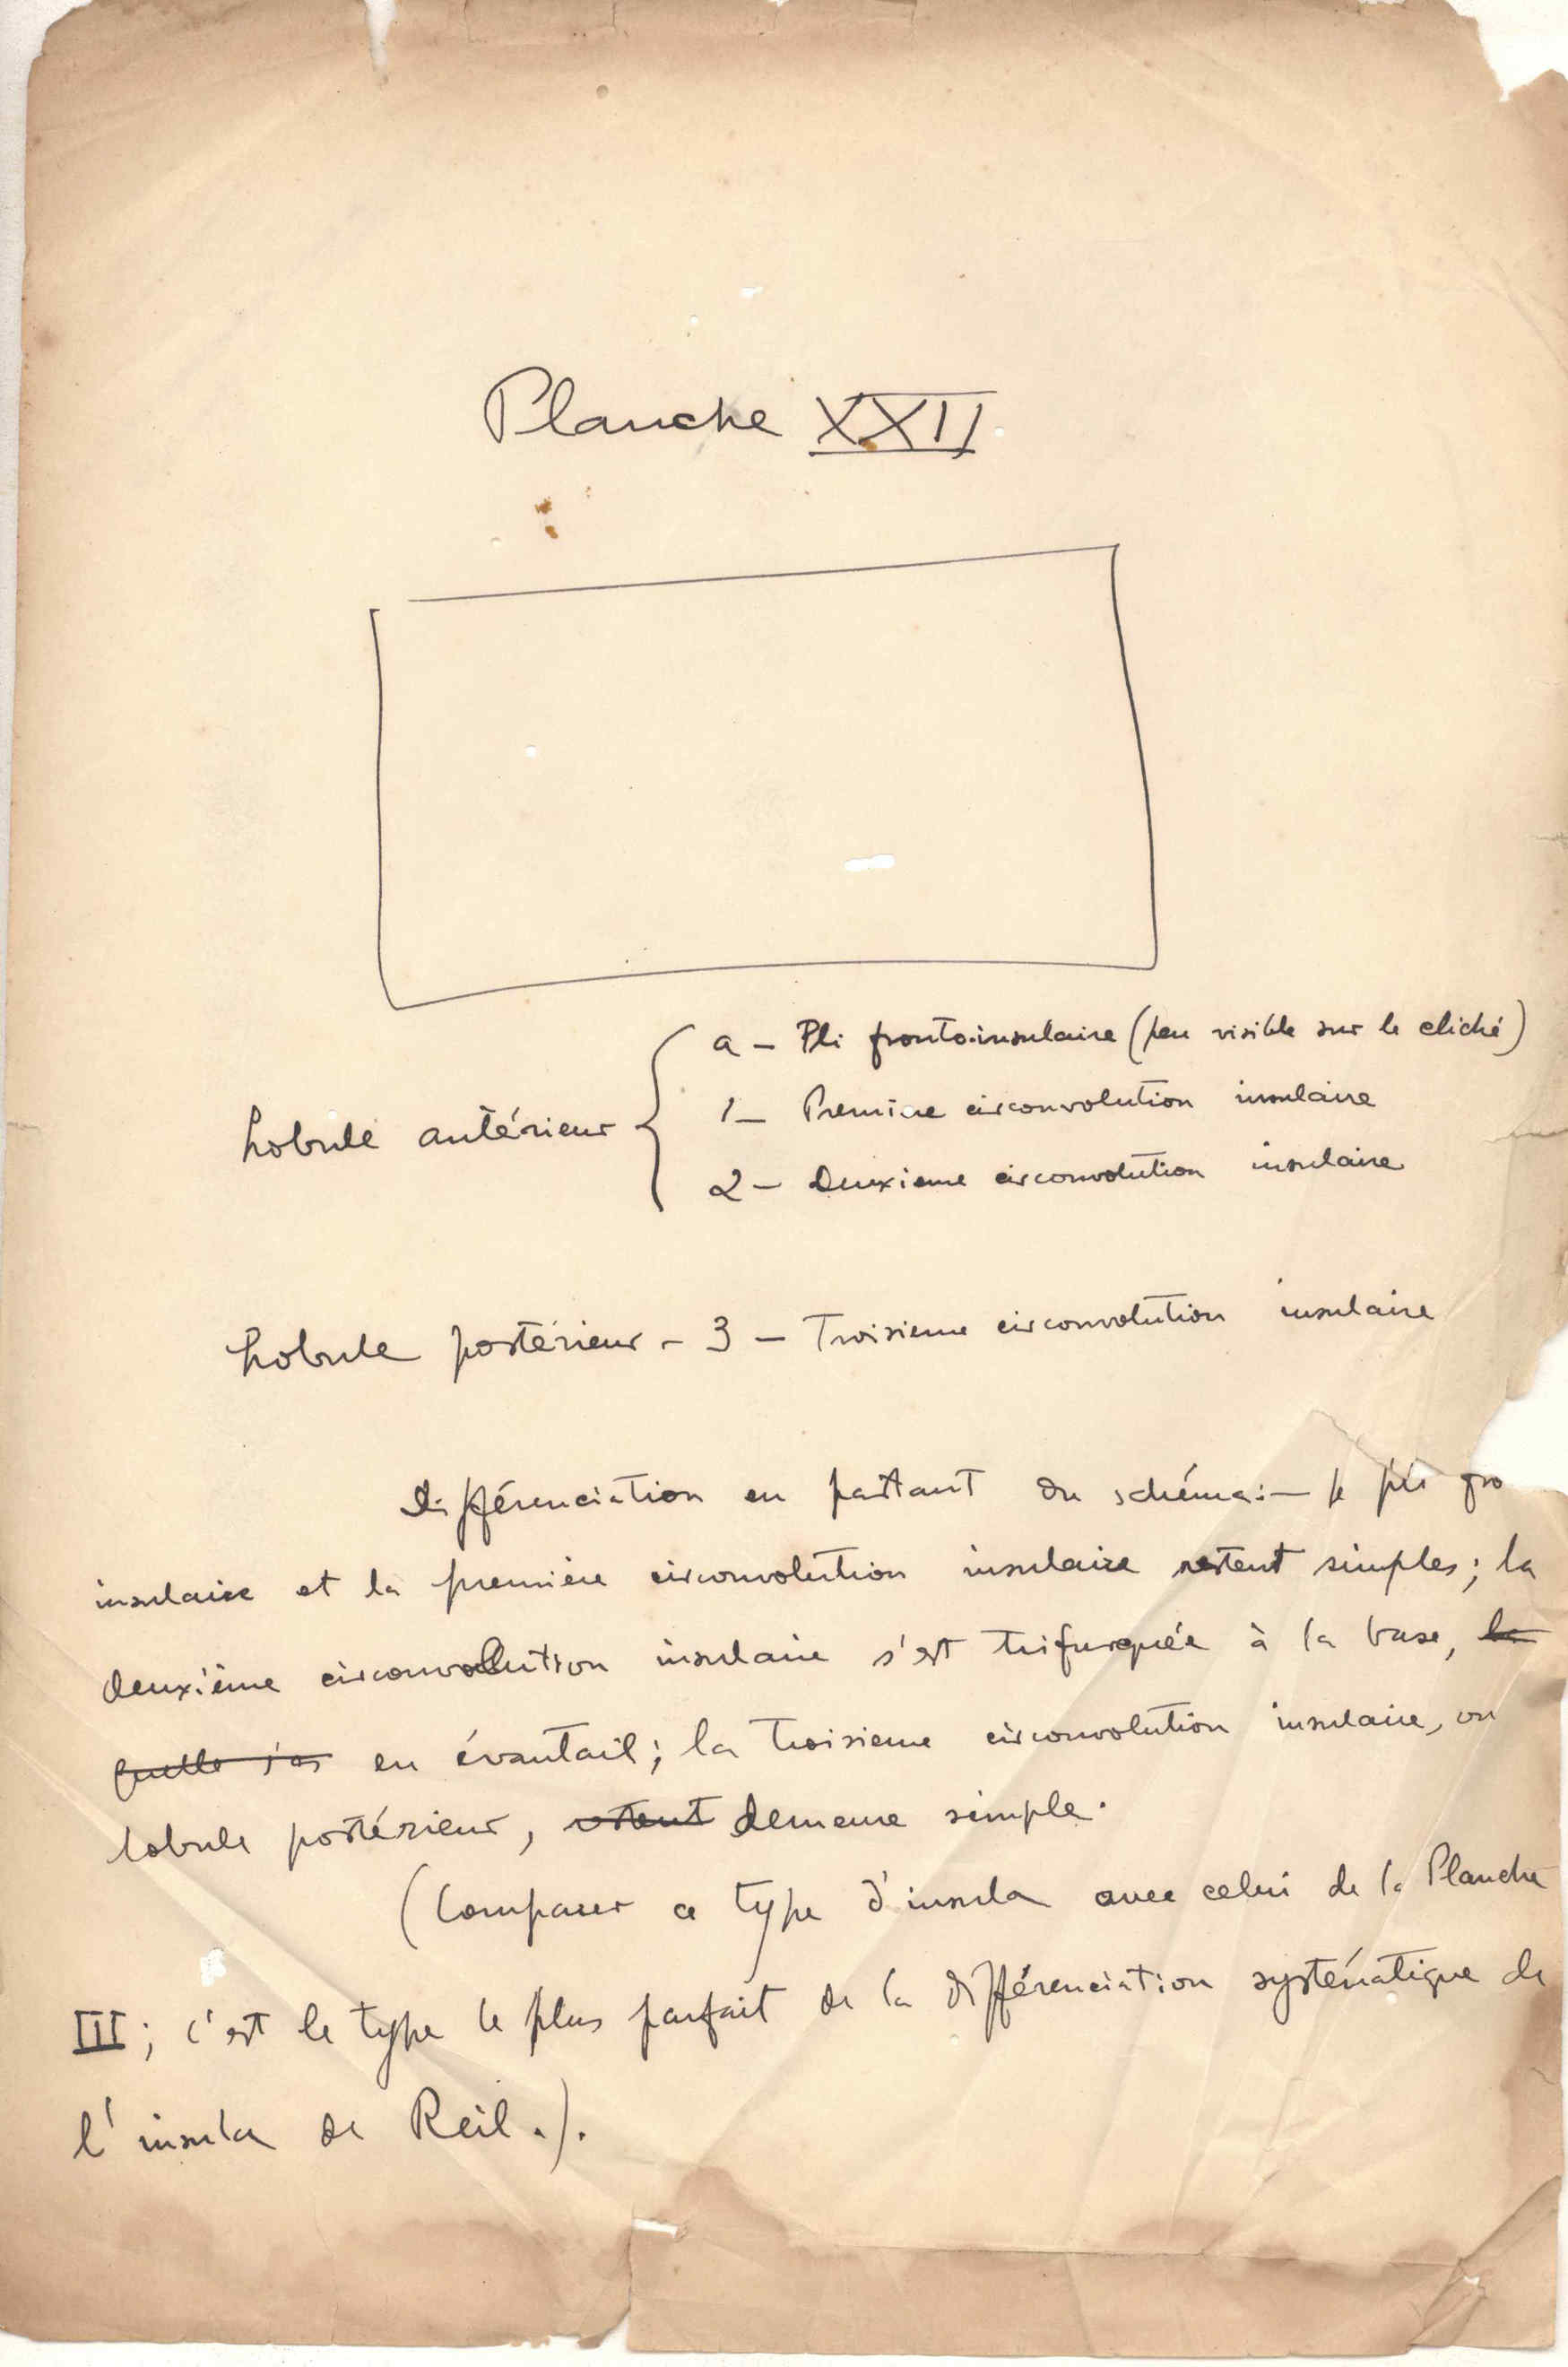 Planche XXII
a - Pli fronto-insulaire (peu visible sur le cliché)
Lobule antérieur { 1 - Première circonvolution insulaire
2 - Deuxieme circonvolution insulaire
Lobule postérieur - 3 - Troisieme circonvolution insulaire
Différenciation en partant du schéma: - le pli fro
insulaire et la première circonvolution insulaire restent simples; la
deuxième circonvolution insulaire s'est trifurquée à la base, la
quelle s'as en évantail; la troisieme circonvolution insulaire, ou
lobule postérieur, restent demeure simple.
(Comparer ce type d'insula avec celui de la Planche
III; c'est le type le plus parfait de la différenciation systématique de
l'insula de Reil.).